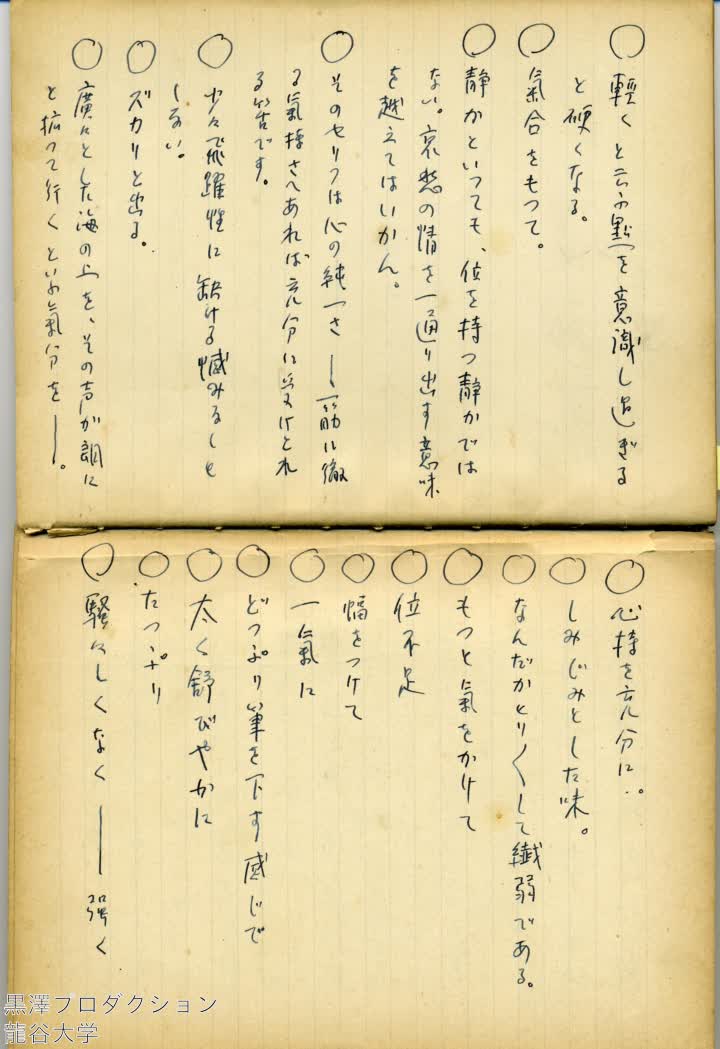 ○ 輕くと云ふ點を意識し過ぎる
と硬くなる。
○ 氣合をもつて。
○ 静かといつても、位を持つ静かでは
ない。哀愁の情を一通り出す意味
を越えてはいかん。
○ そのセリフは心の純一さ―一筋に徹
る氣持さへあれば充分に受けとれ
る筈です。
○ 少々飛躍性に缺ける憾みなしと
しない。
○ ズカリと出る。
○ 廣々とした海の上を、その声が朗に
と拡つて行くといふ氣分を―。
○ 心持を充分に..
○ しみじみとした味。
○ なんだかとり〱して繊弱である。
○ もつと氣をかけて
○ 位不足
○ 幅をつけて
○ 一氣に
○ どつぷり筆を下す感じで
○ 太く舒びやかに
○ たつぷり
○ 騒々しくなく ― 強く
黒澤プロダクション
龍谷大学